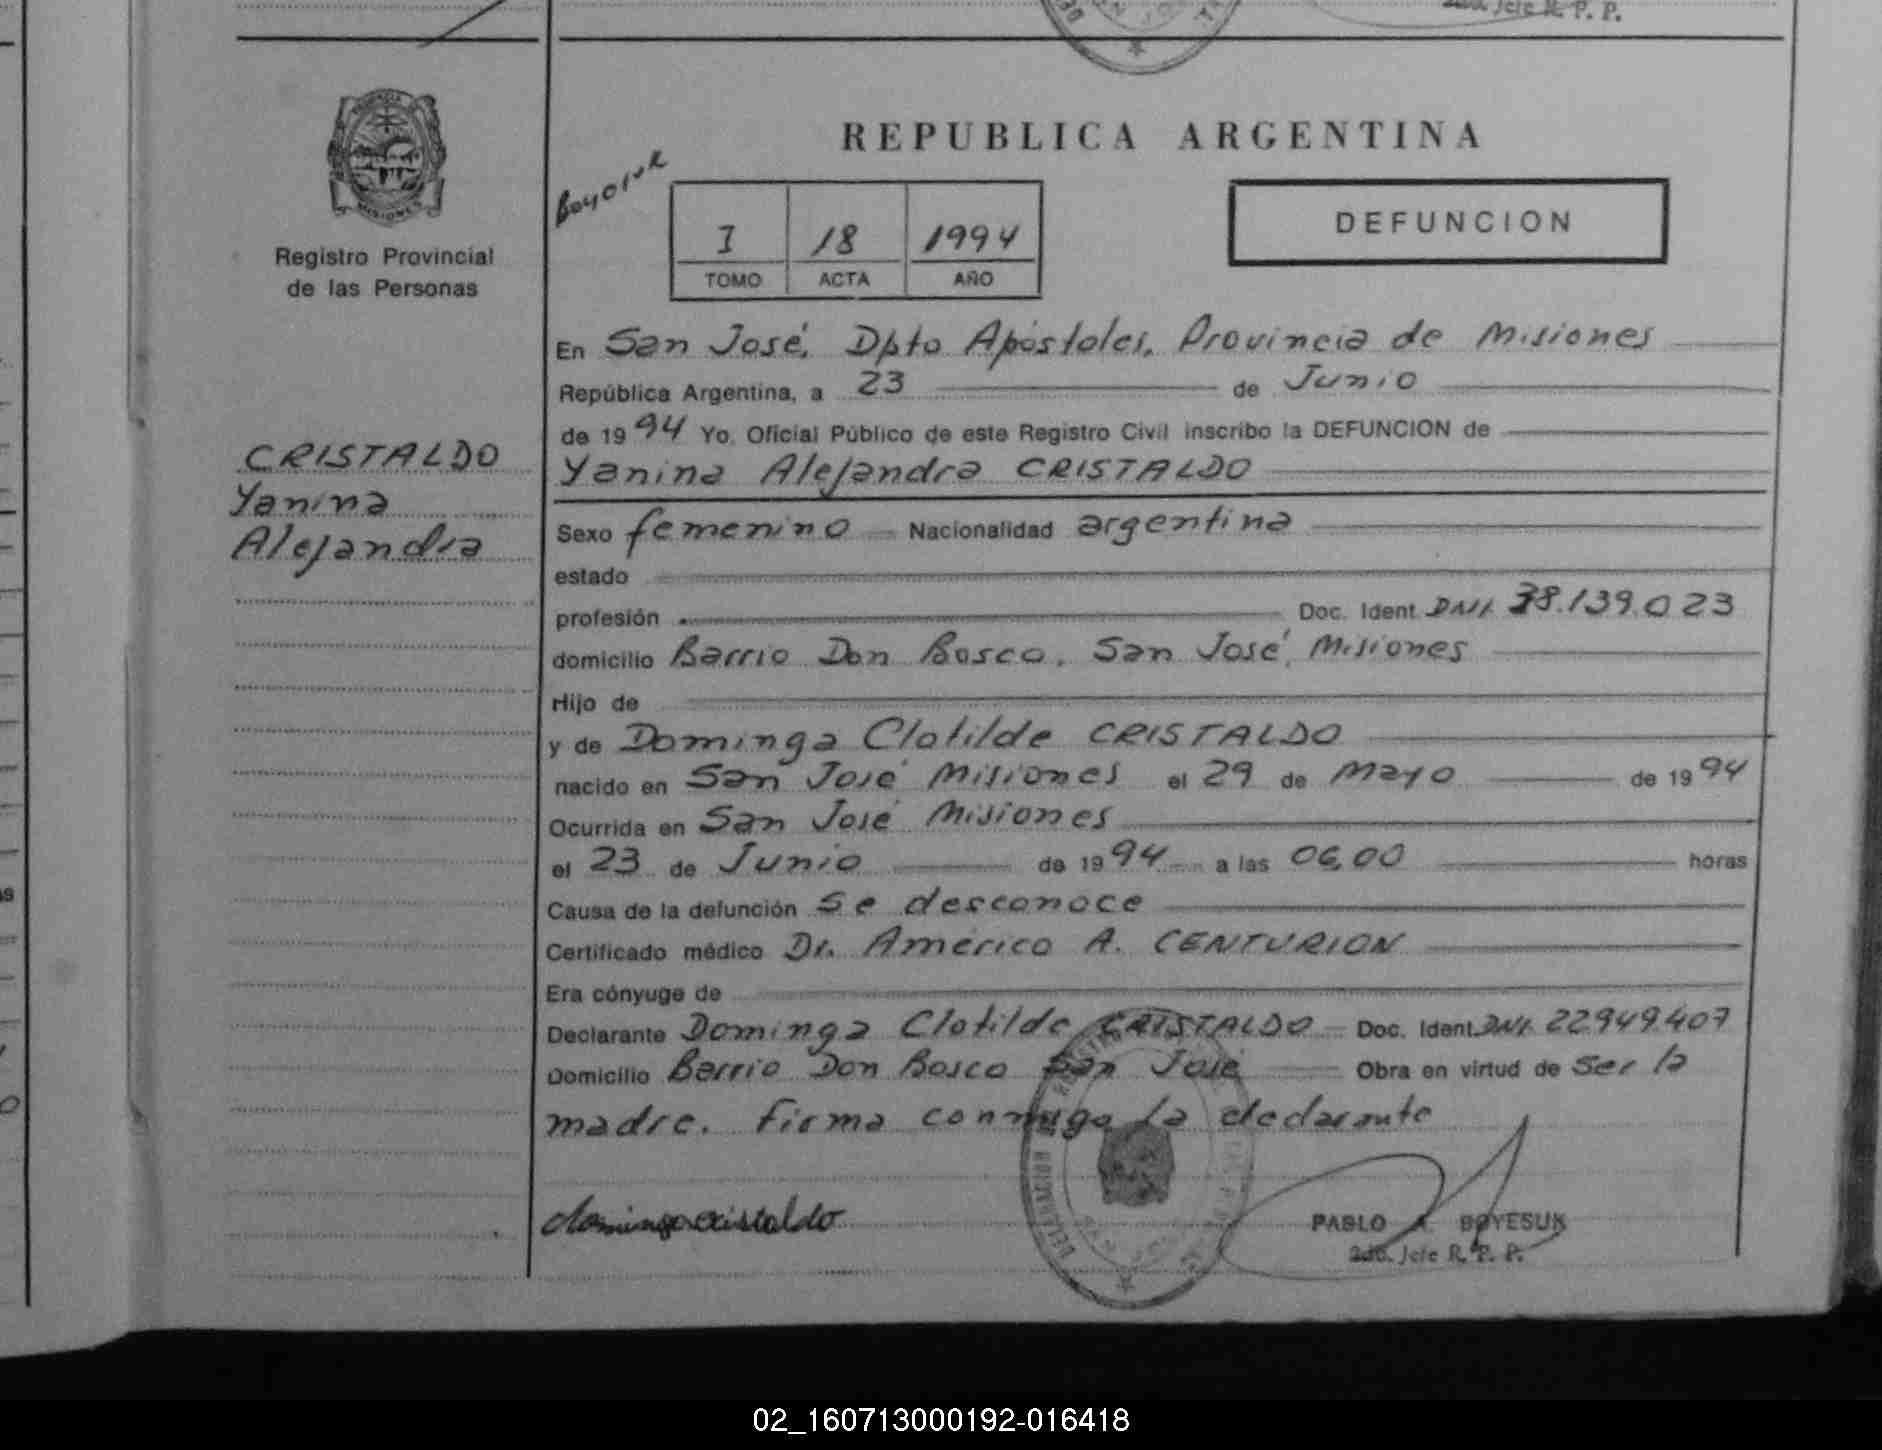 2do. Jefe R. P. P.
REPUBLICA ARGENTINA
PROVINCIA
MISIONES
Registro Provincial
de las Personas
I 18 1994
TOMO ACTA AÑO
DEFUNCION
En San José, Dpto Apóstoles, Provincia de Misiones
República Argentina, a 23 de Junio
de 1994 Yo, Oficial Público de este Registro Civil inscribo la DEFUNCION de
Yanina Alejandra CRISTALDO
CRISTALDO
Yanina
Alejandra
Sexo femenino Nacionalidad argentina
estado
profesión Doc. Ident. DNI. 38.139.023
domicilio Barrio Don Bosco, San José, Misiones
Hijo de
y de Dominga Clotilde CRISTALDO
nacido en San José Misiones el 29 de Mayo de 1994
Ocurrida en San José Misiones
el 23 de Junio de 1994 a las 06,00 horas
Causa de la defunción Se desconoce
Certificado médico Dr. Américo A. CENTURION
Era cónyuge de
Declarante Dominga Clotilde CRISTALDO Doc. Ident. DNI. 22.949.407
Domicilio Barrio Don Bosco San José Obra en virtud de Ser la
madre. Firma conmigo la declarante
dominga cristaldo
PABLO A. BOYESUK
2do. Jefe R. P. P.
02_160713000192-016418